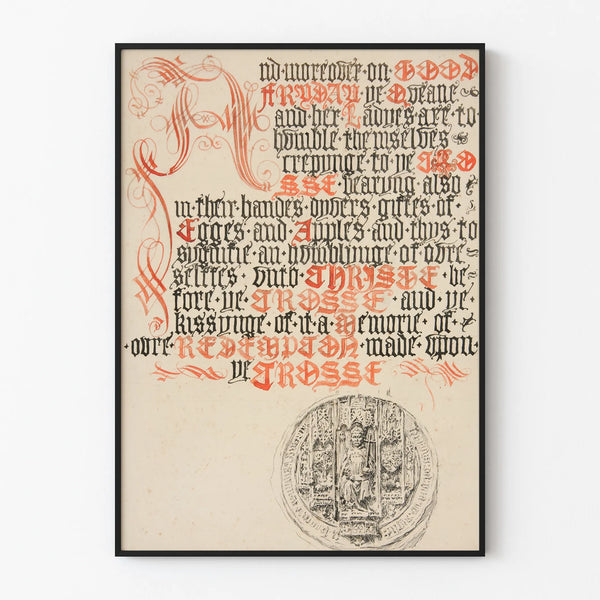 And·moreover·on·GOOD
FRYDAY·ye·Queane
and·her·Ladyes·are·to
humble·themselves
crepynge·to·ye·CRO
SSE·bearyng·also
in·their·handes·dyvers·giftes·of
Egges·and·Apples·and·thys·to
sygnifie·an·humblynge·of·oure
selfes·unto·CHRISTE·be
fore·ye·CROSSE·and·ye·
kissynge·of·it·a·Memorie·of·
·oure·REDEMPTION·made·upon·
ye·CROSSE